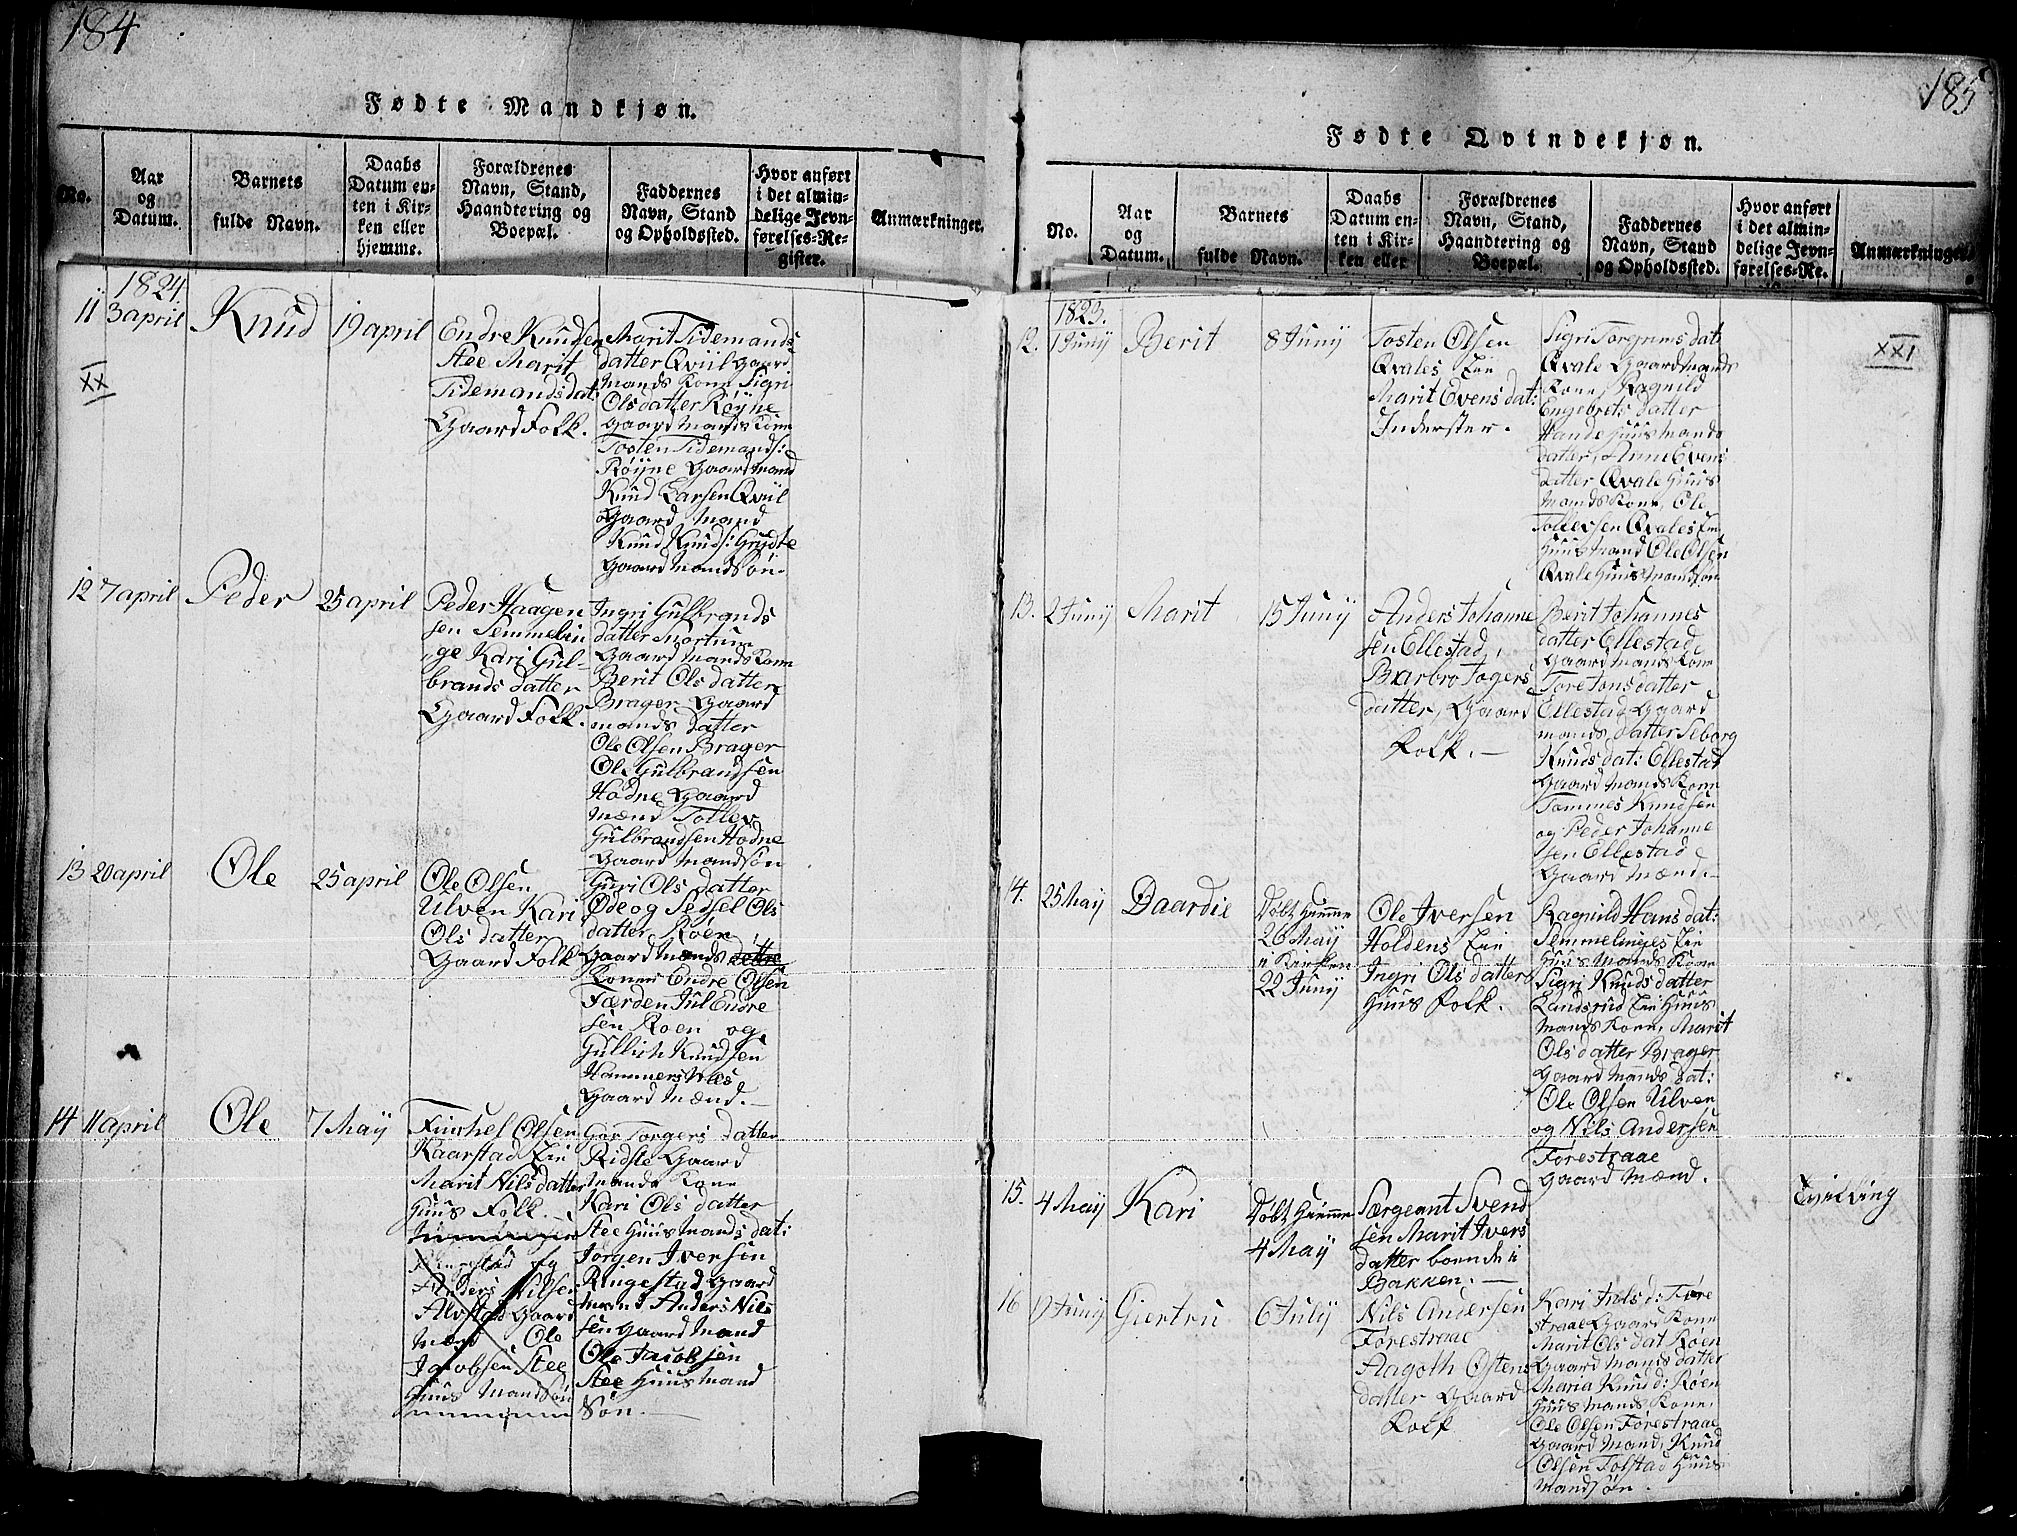 184
Fødte Mandkjøn.
No.
Aar
og
Datum.
Barnets
fulde Navn.
Daabs
Datum en-
ten i Kir-
ken eller
hjemme.
Forældrenes
Navn, Stand,
Haandtering og
Boepæl.
Faddernes
Navn, Stand
og Opholdssted.
Hvor anført
i det almin-
delige Jevn-
førelses-Re-
gister.
Anmærkninger.
1824.
11 3 april Knud 19 april
XX
Endre Knudsen
Stee Marit
Tidemandsdat:
Gaard Folk.
Marit Tidemands
datter Qviil Gaard
mands Kone Sigri
Olsdatter Røyne
Gaard mands Kone
Tosten Tidemands:
Røyne Gaard mand
Knud Larsen Qviil
Gaard mand
Knud Knuds: Grydte
Gaard mands Søn.
12 7 april Peder 25 april
Peder Haagen
sen Semmelin
ge Kari Gul-
brands datter
Gaard Folk.
Ingri Gulbrands
datter Mortun
Gaard mands Kone
Berit Ols datter
Brager Gaard
mands datter
Ole Olsen Brager
Ole Gulbrandsen
Hodne Gaard
mænd Tollev
Gulbrandsen Hodne
Gaard mands Søn
13 20 april Ole 25 april
Ole Olsen
Ulven Kari
Ols datter
Gaard Folk
Guri Ols datter
Øde og Sedsel Ols
datter Roen
Gaard mænds døttre
Koner Endre Olsen
Færden Jul Endre
sen Roen og
Gullich Knudsen
Hammersnæs
Gaard mænd.
14 11 april Ole 7 May
Finchel Olsen
Kaarstad Eie
Marit Nils datter
Huus Folk.
og
Anders Nilsen
Alvstad Gaard
mænd Ole
Jacobsen Stee
Huus mands Søn
Gør Torgers datter
Ridste Gaard
mands Kone
Kari Ols datter
Stee Huus mands dat:
Jørgen Iversen
Ringestad Gaard
mand Anders Nils
sen Gaard mand
Ole Jacobsen
Stee Huus mand
Søn.
185
Fødte Qvindekjøn.
No.
Aar
og
Datum.
Barnets
fulde Navn.
Daabs
Datum en-
ten i Kir-
ken eller
Forældrenes
Navn, Stand,
Haandtering og
Boepæl.
Faddernes
Navn, Stand
og Opholdssted.
Hvor anført
i det almin-
delige Jevn-
førelses-Re-
Anmærkninger.
1823.
12. 1 Juny Berit 8 Juny
XXI
Tosten Olsen
Qvales Eie
Marit Evensdat:
Inderster.
Sigri Torgrims dat:
Qvale Gaard mands
Kone, Ragnild
Engebrets datter
Hande Huus mands
datter, Anne Evens
datter Qvale Huus
mands Kone, Ole
Tollevsen Qvales Eie
Huus mand Ole Olsen
Qvale Huus mands Søn
13. 2 Juny Marit 15 Juny
Anders Johanne
sen Ellestad,
Barbro Togers
datter, Gaard
Folk.
Berit Johannes
datter Ellestad
Gaard mands Kone
Tore Jons datter
Ellestad Gaard
mands datter Seborg
Knuds dat: Ellestad
Gaard mands Kone
Tommes Knudsen
og Peder Johanne
sen Ellestad
Gaard mænd.
14. 25 May Baardie Døbt Hiemme
26 May
i Kirken
22 Juny
Ole Iversen
Holdens Eie
Ingri Ols datter
Huus Folk.
Ragnild Hans dat:
Semmelinges Eie
Huus mands Kone
Sigri Knuds datter
Landsrud Eie Huus
mands Kone, Marit
Ols datter Brager
Gaard mands dat:
Ole Olsen Ulven
og Nils Andersen
Førestraae
Gaard mænd.
15. 4 May Kari Døbt Hiemme
4 May
Særgeant Svend
sen Marit Ivers
datter boende i
Bakken.
Tvilling
16 17 Juny Giertru 6 July
Nils Andersen
Førestraae
Aagoth Østens
datter Gaard
Folk
Kari Juls d: Føre
straae Gaard Kone
Marit Ols dat Røen
Gaard mands datter
Maria Knud: Røen
Huus mands Kone,
Ole Olsen Førestraae
Gaard mand, Knud
Olsen Tolstad Huus
mands Søn.